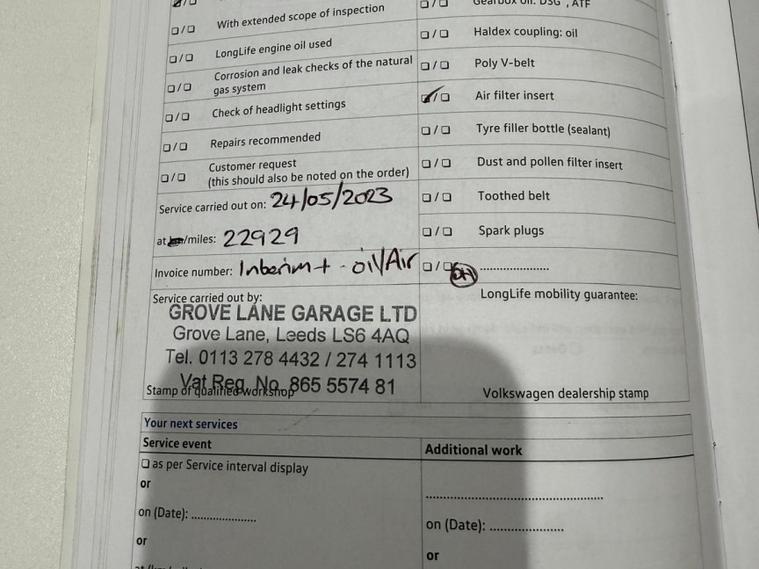 ☑/☐
With extended scope of inspection
☐/☐ LongLife engine oil used
☐/☐ Corrosion and leak checks of the natural
gas system
☐/☐ Check of headlight settings
☐/☐ Repairs recommended
☐/☐ Customer request
(this should also be noted on the order)
Service carried out on: 24/05/2023
at km/miles: 22929
Invoice number: Interim + - oil/Air
Service carried out by:
GROVE LANE GARAGE LTD
Grove Lane, Leeds LS6 4AQ
Tel. 0113 278 4432 / 274 1113
Vat Reg. No. 865 5574 81
Stamp of qualified workshop
Gearbox oil: DSG , ATF
☐/☐ Haldex coupling: oil
☐/☐ Poly V-belt
☑/☐ Air filter insert
☐/☐ Tyre filler bottle (sealant)
☐/☐ Dust and pollen filter insert
☐/☐ Toothed belt
☐/☐ Spark plugs
☐/☐ ....................
LongLife mobility guarantee:
Volkswagen dealership stamp
Your next services
Service event
☐ as per Service interval display
or
on (Date): ..................
or
Additional work
..................................................
on (Date): ....................
or